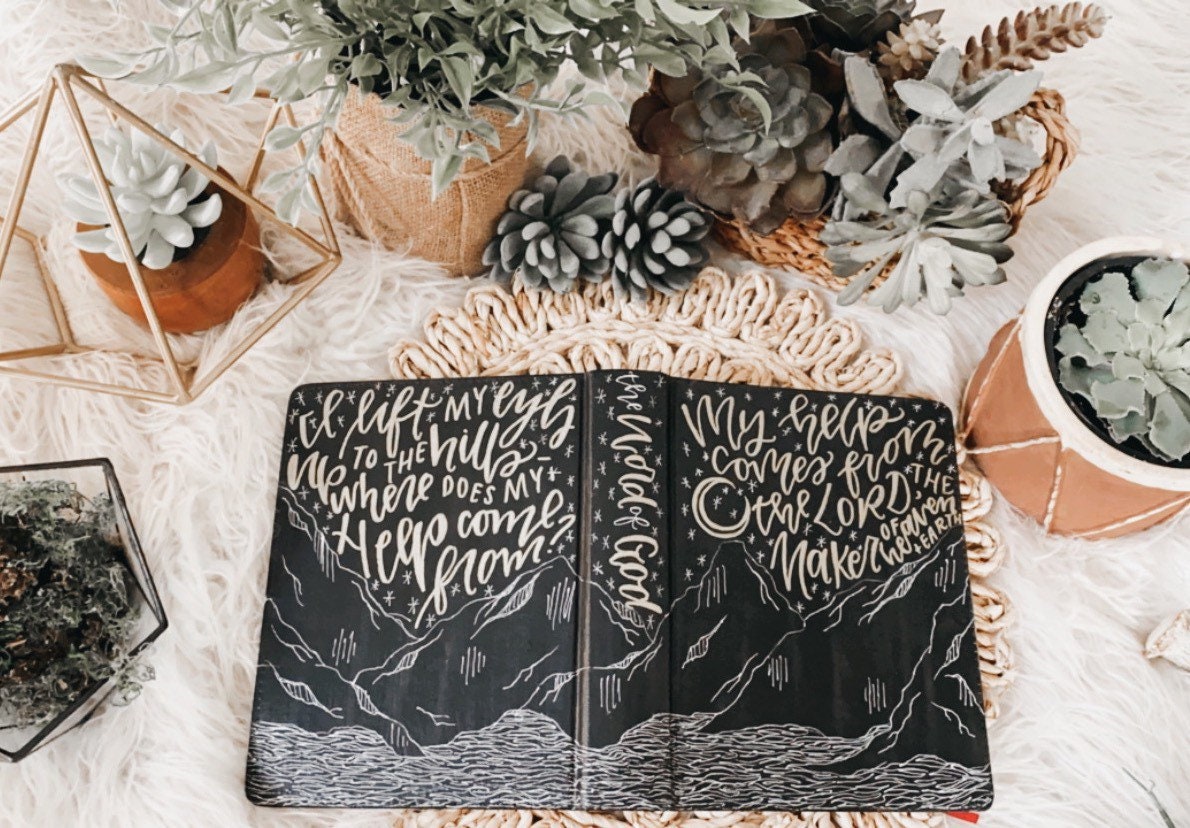 I lift MY eyes
UP TO THE hills -
where DOES MY
Help come
from?
the Word of God
My help
comes from
the LORD, THE
Maker OF heaven
+ EARTH